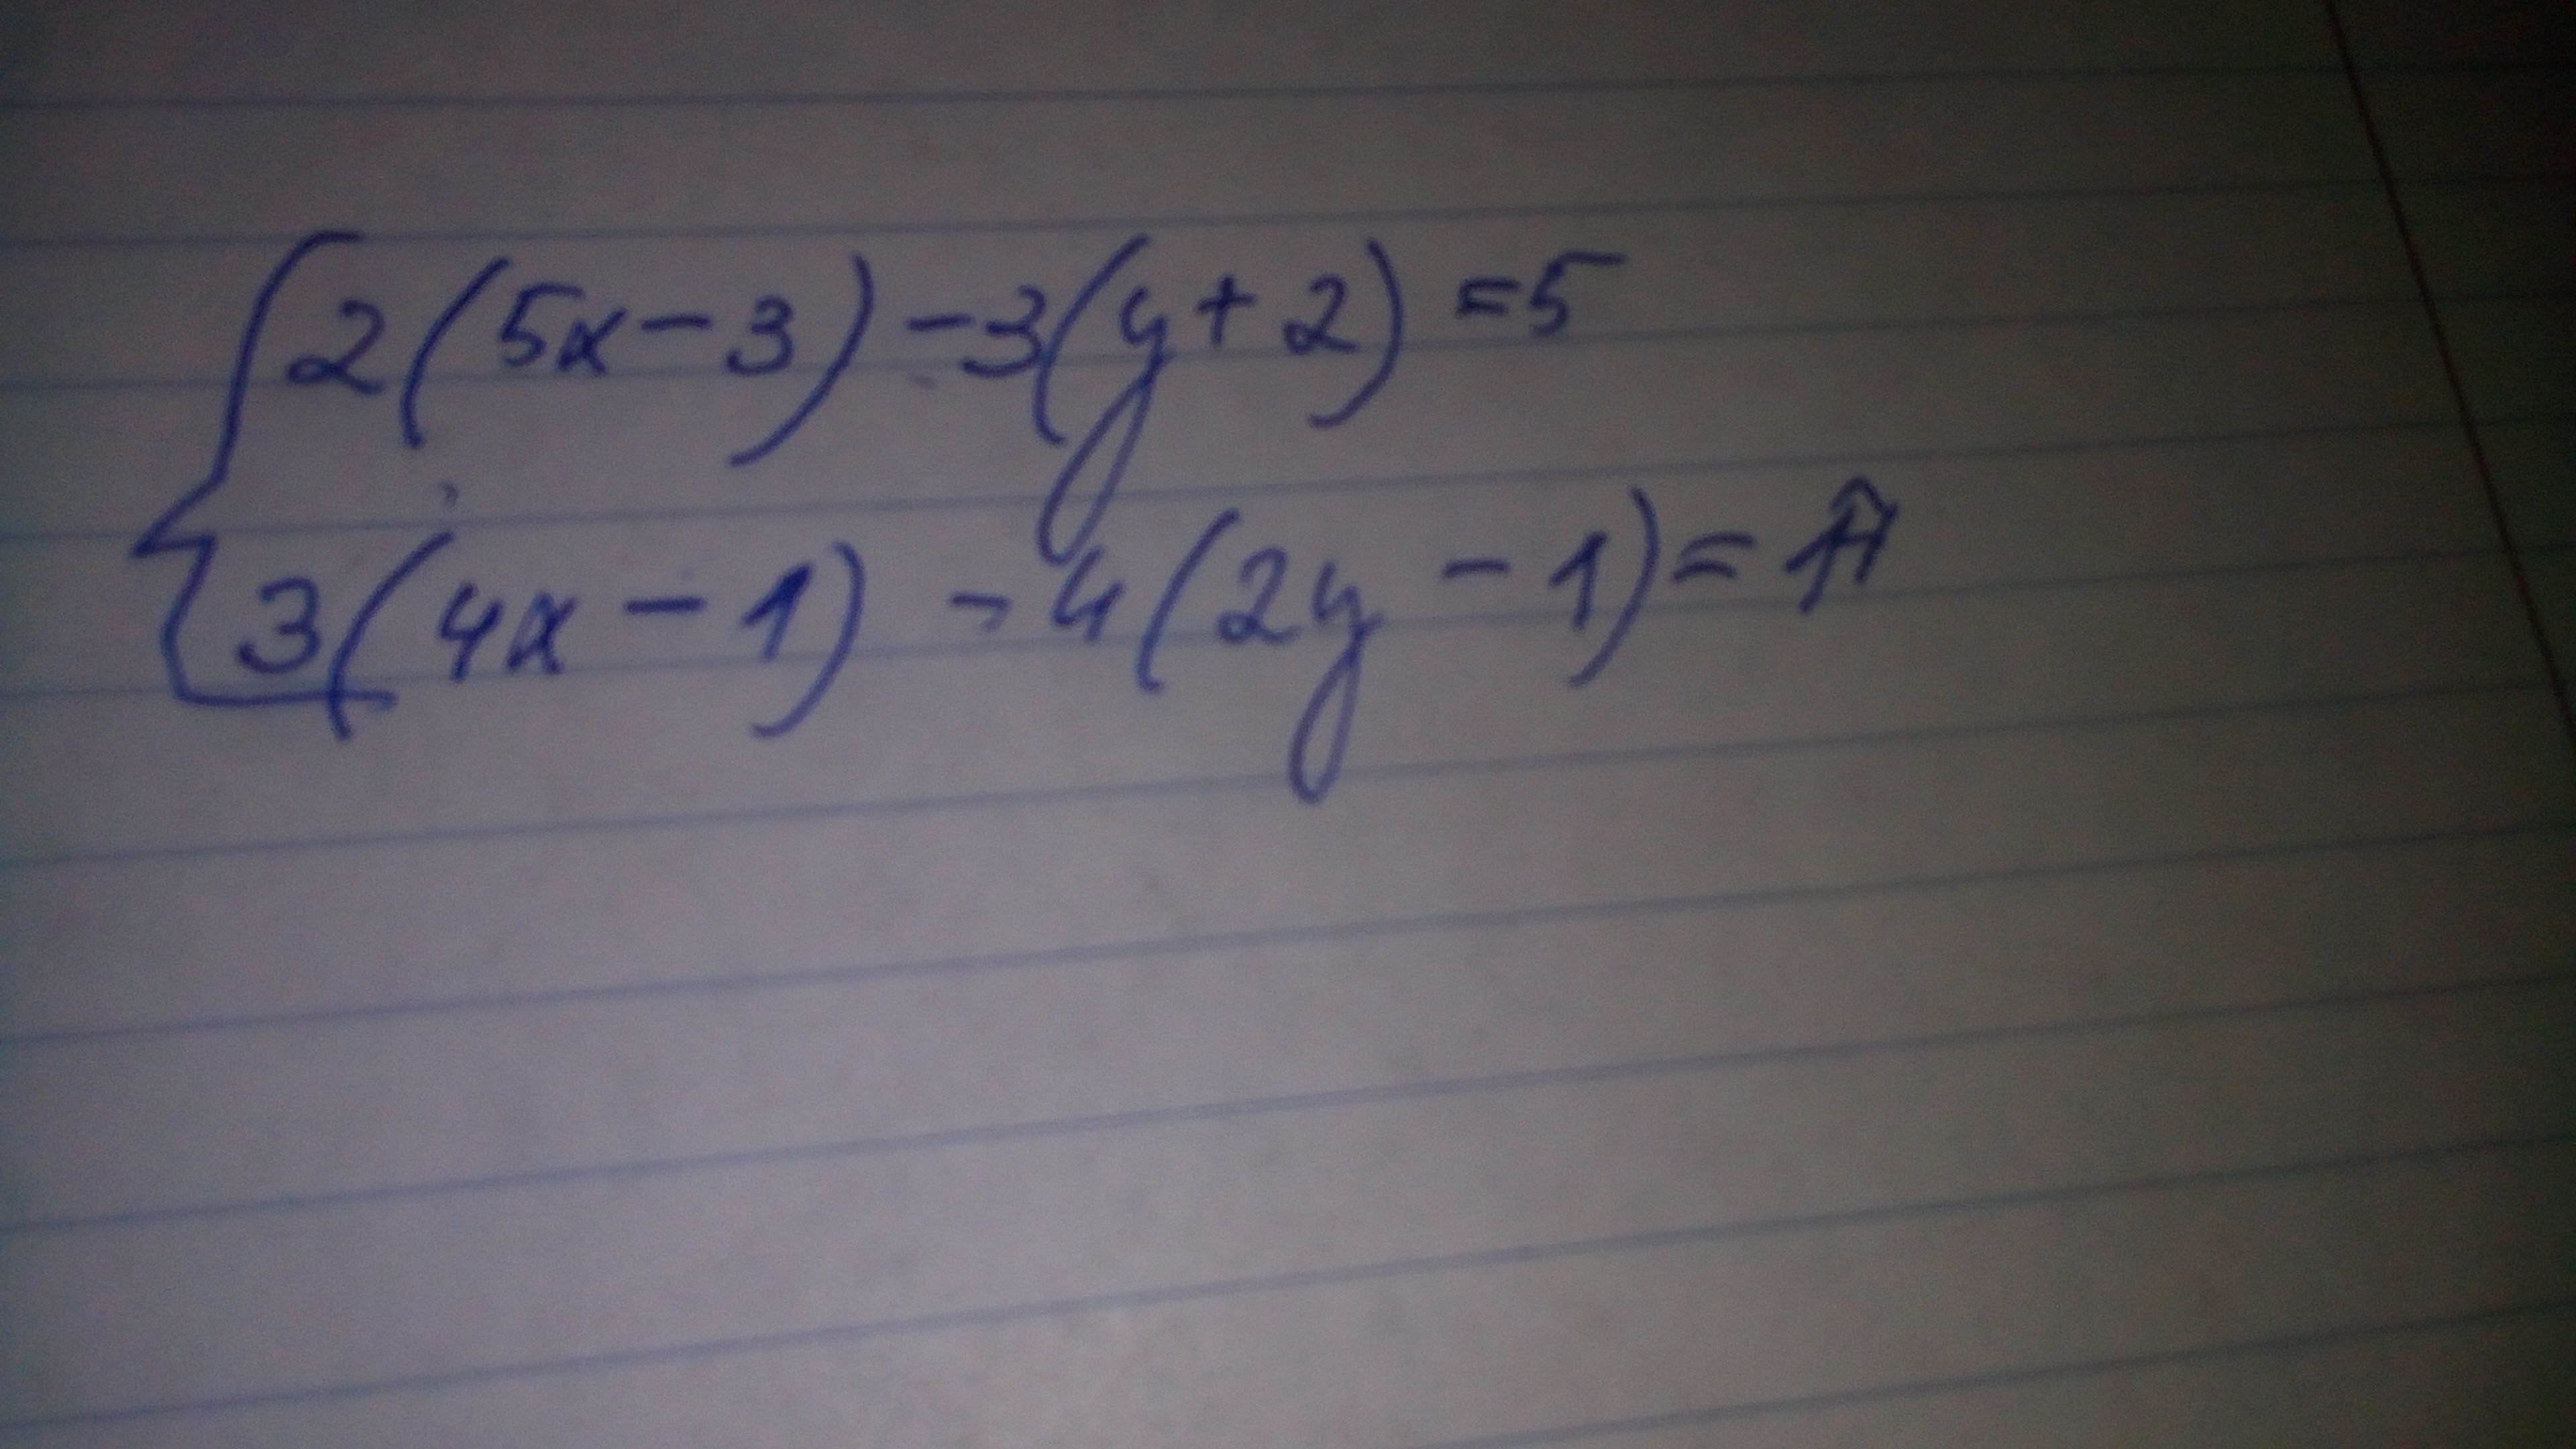 2(5x-3)-3(y+2)=5
3(4x-1)-4(2y-1)=17